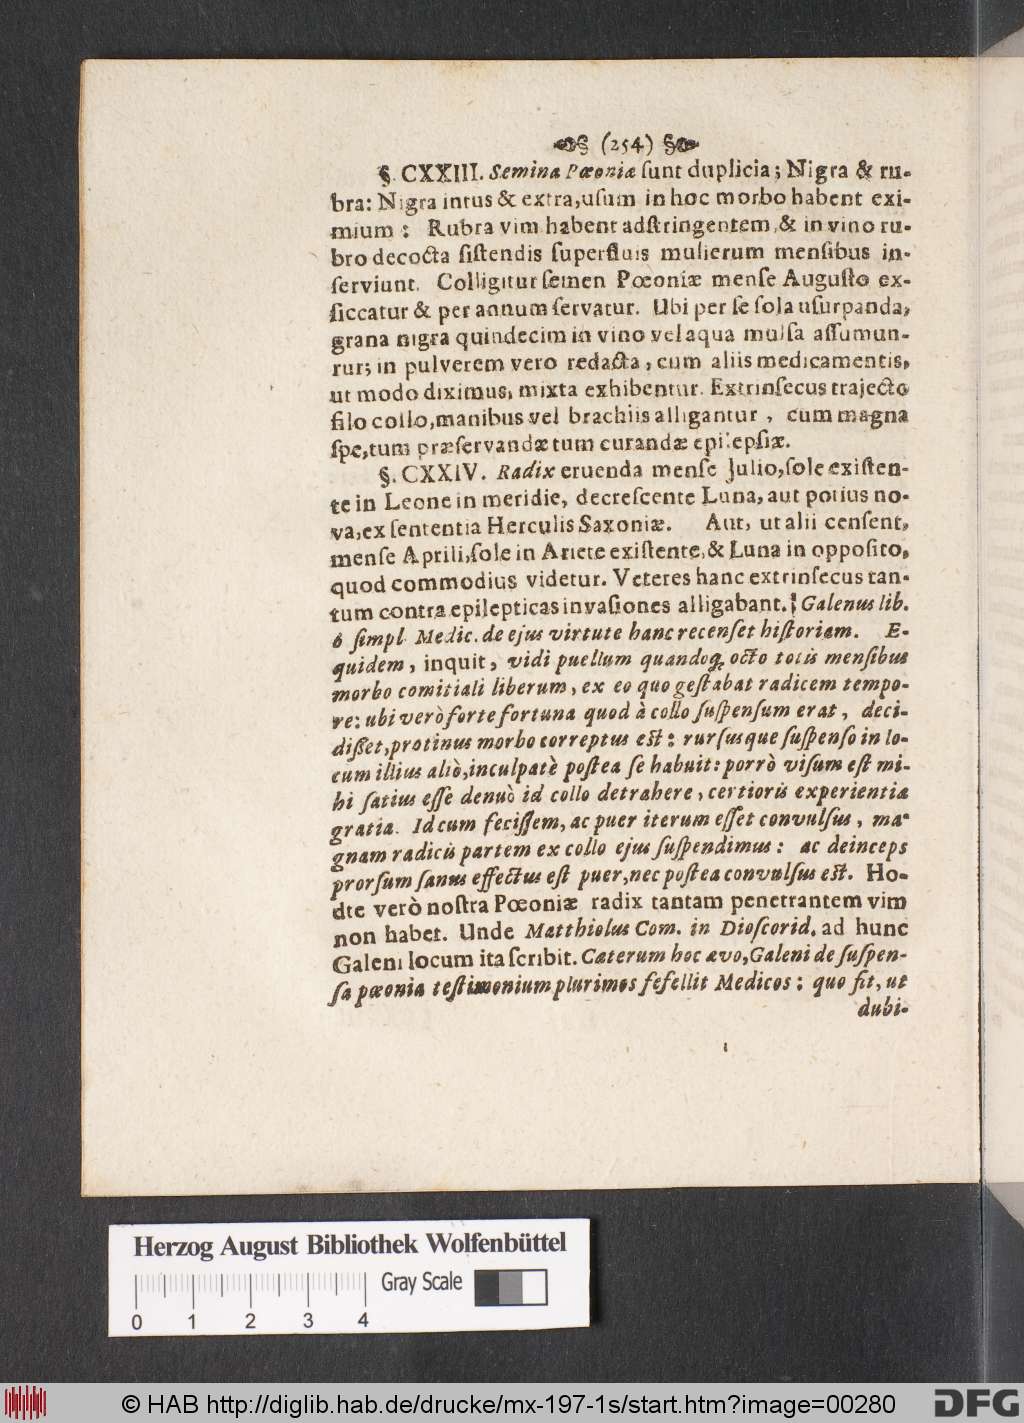 (254)
§. CXXIII. Semina Pœoniæ ſunt duplicia; Nigra & ru-
bra: Nigra intus & extra, uſum in hoc morbo habent exi-
mium: Rubra vim habent adſtringentem, & in vino ru-
bro decocta ſiſtendis ſuperfluis mulierum menſibus in-
ſerviunt. Colligitur ſemen Pœoniæ menſe Auguſto ex-
ſiccatur & per annum ſervatur. Ubi per ſe ſola uſurpanda,
grana nigra quindecim in vino vel aqua mulſa aſſumun-
rur; in pulverem vero redacta, cum aliis medicamentis,
ut modo diximus, mixta exhibentur. Extrinſecus trajecto
filo collo, manibus vel brachiis alligantur, cum magna
ſpe, tum præſervandæ tum curandæ epilepſiæ.
§. CXXIV. Radix eruenda menſe Julio, ſole exiſten-
te in Leone in meridie, decreſcente Luna, aut potius no-
va, ex ſententia Herculis Saxoniæ. Aut, ut alii cenſent,
menſe Aprili, ſole in Ariete exiſtente, & Luna in oppoſito,
quod commodius videtur. Veteres hanc extrinſecus tan-
tum contra epilepticas invaſiones alligabant. Galenus lib.
6 ſimpl. Medic. de ejus virtute hanc recenſet hiſtoriam. E-
quidem, inquit, vidi puellum quandoq; octo totis menſibus
morbo comitiali liberum, ex eo quo geſtabat radicem tempo-
re: ubi verò forte fortuna quod à collo ſuſpenſum erat, deci-
diſſet, protinus morbo correptus eſt: rurſusque ſuſpenſo in lo-
cum illius aliò, inculpatè poſtea ſe habuit: porrò viſum eſt mi-
hi ſatius eſſe denuò id collo detrahere, certioris experientia
gratia. Id cum feciſſem, ac puer iterum eſſet convulſus, ma-
gnam radicis partem ex collo ejus ſuſpendimus: ac deinceps
prorſum ſanus effectus eſt puer, nec poſtea convulſus eſt. Ho-
dte verò noſtra Pœoniæ radix tantam penetrantem vim
non habet. Unde Matthiolus Com. in Dioſcorid. ad hunc
Galeni locum ita ſcribit. Cæterum hoc ævo, Galeni de ſuſpen-
ſa pœonia teſtimonium plurimos fefellit Medicos: quo fit, ut
dubi-
Herzog August Bibliothek Wolfenbüttel
Gray Scale
0 1 2 3 4
© HAB http://diglib.hab.de/drucke/mx-197-1s/start.htm?image=00280
DFG